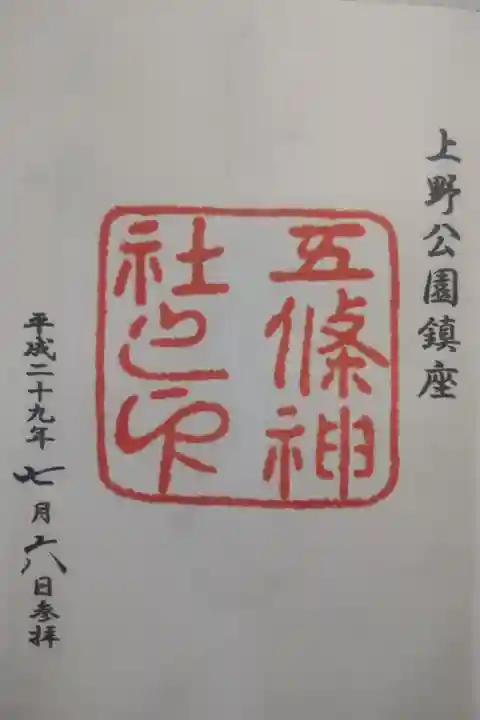 上野公園鎮座
五條神
社之印
平成二十九年七月日参拝